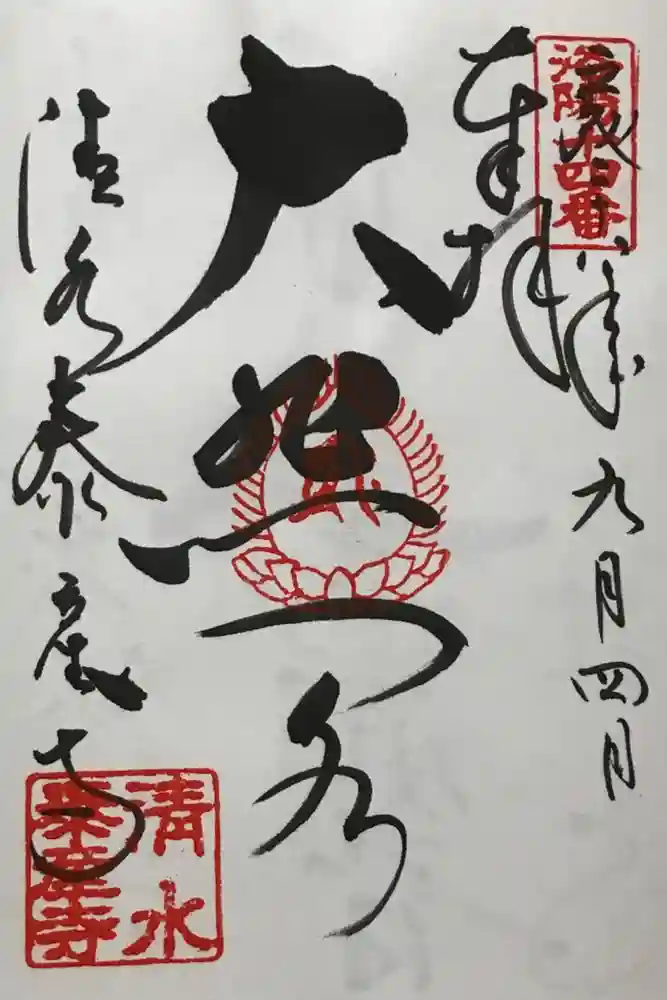 洛陽十四番
平成
年九月四日
奉拝
大悲閣
清水泰産寺
清水
泰産寺